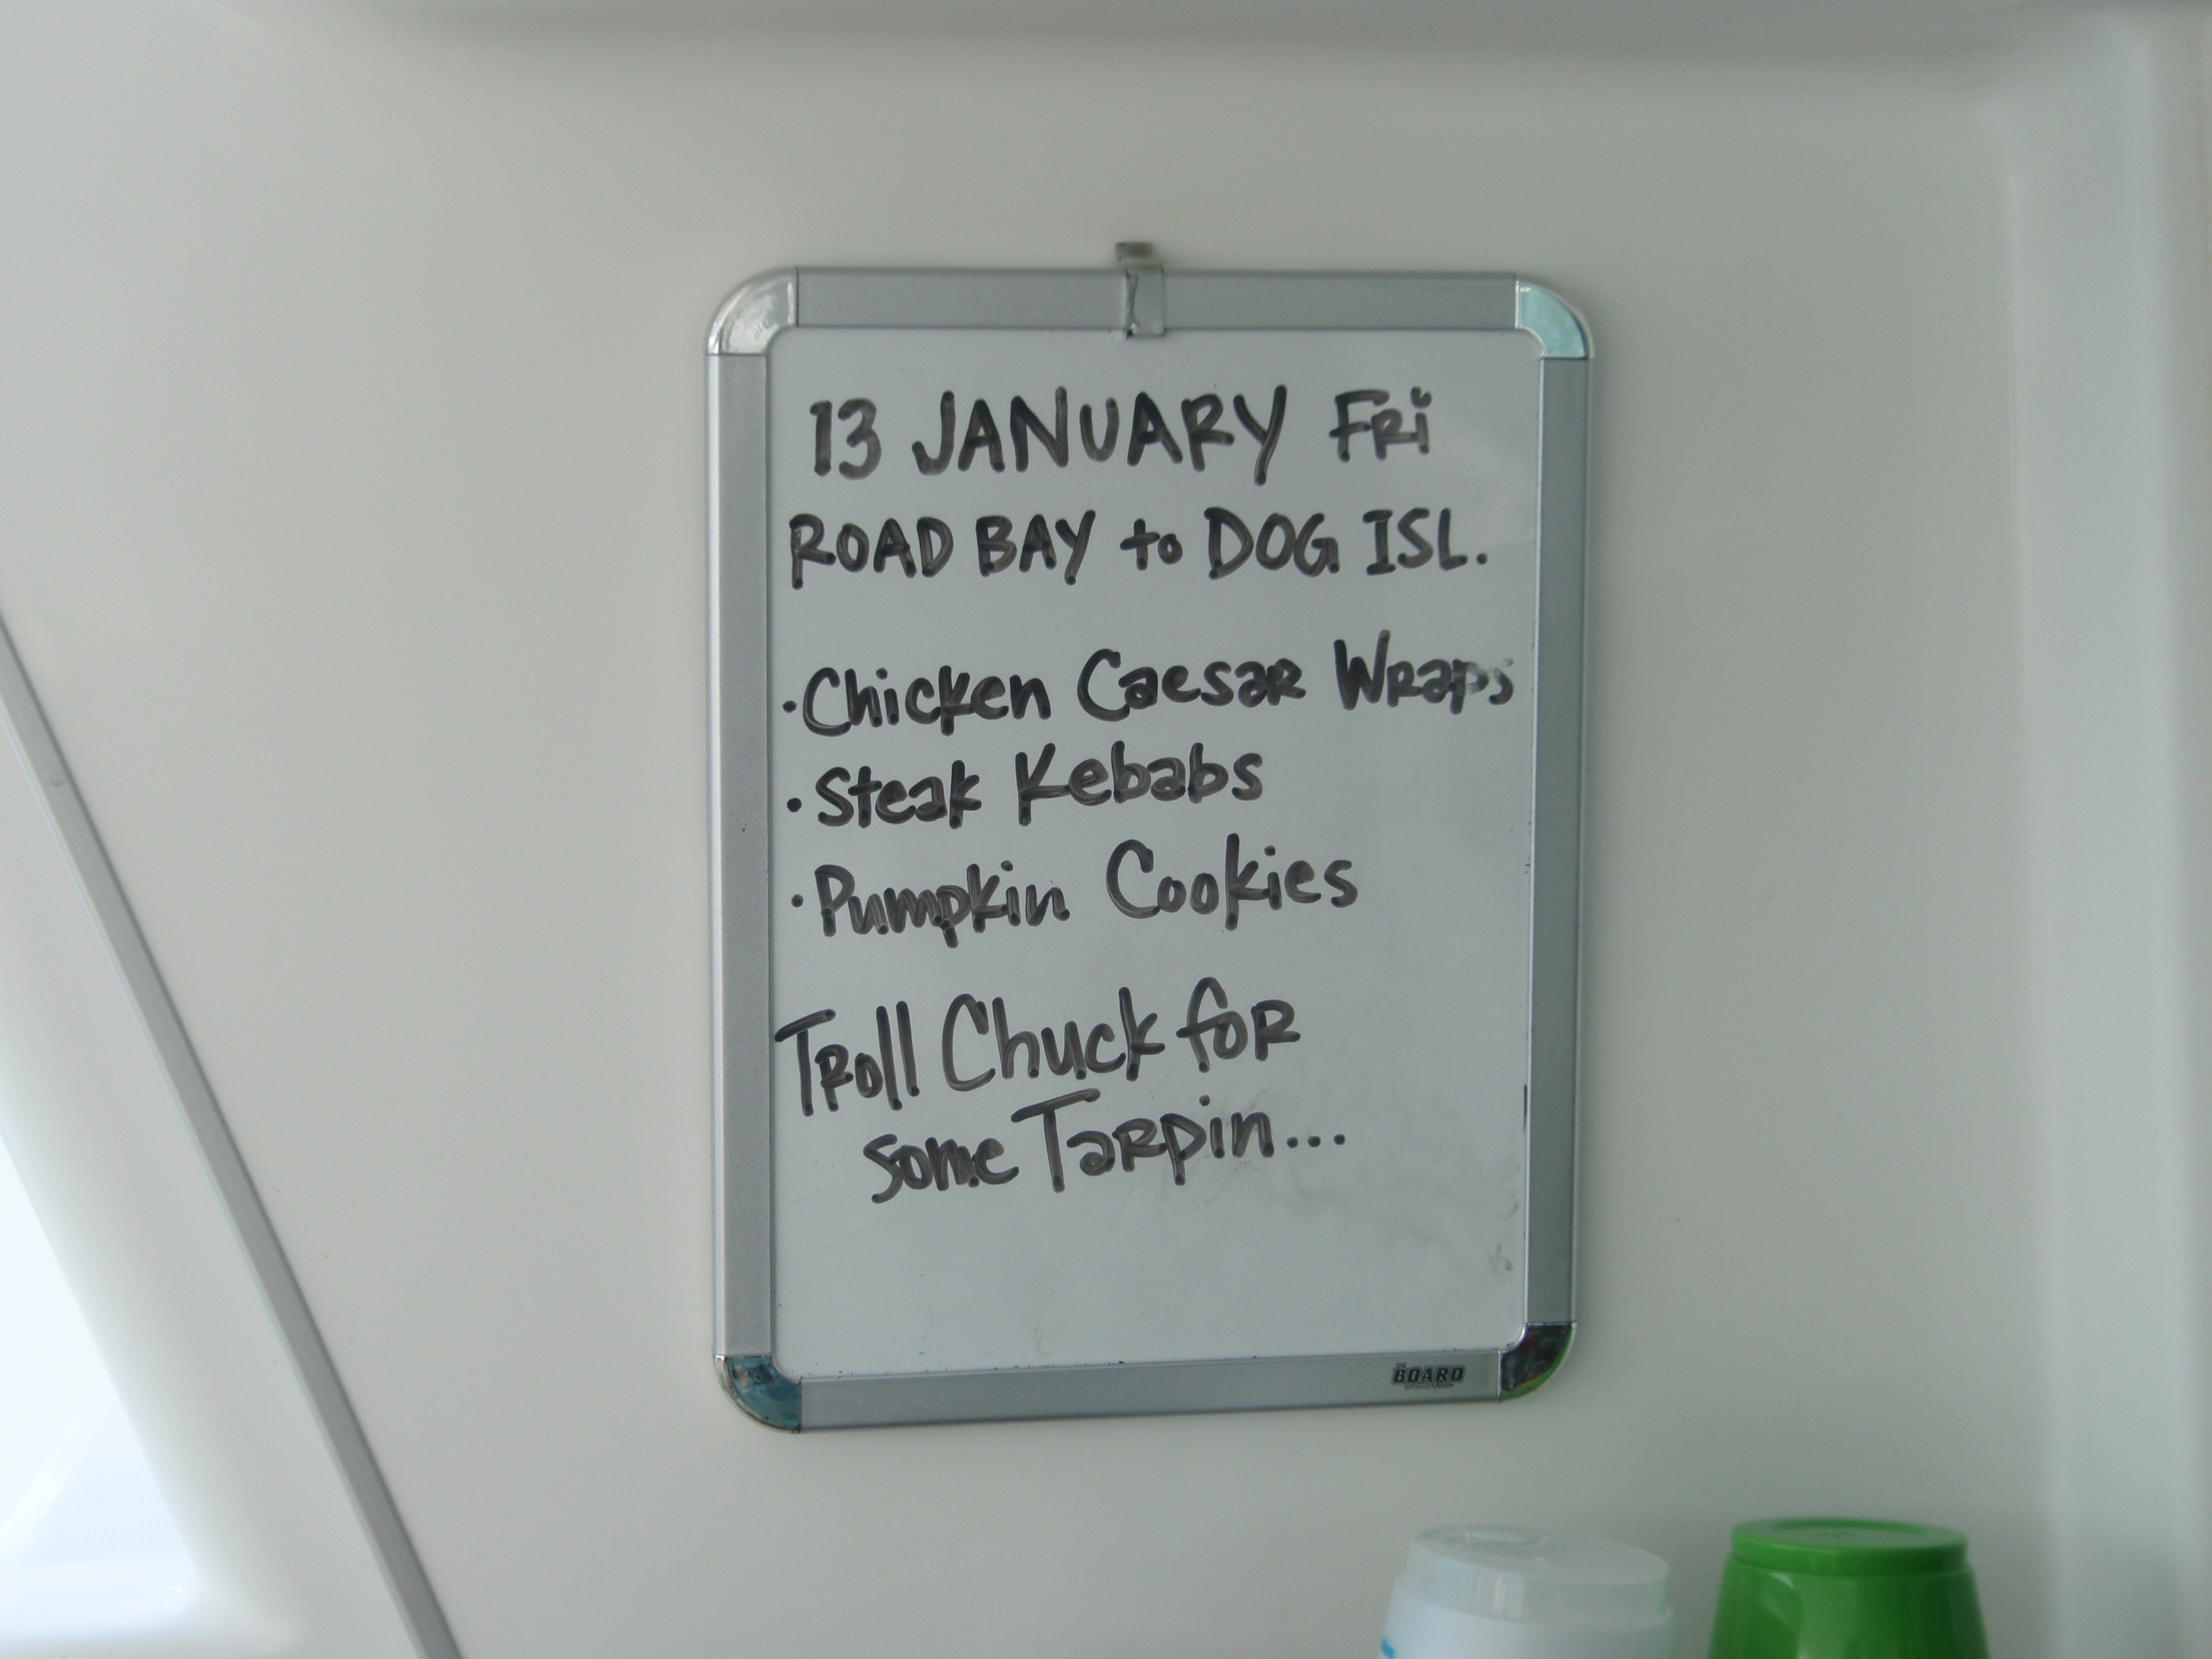 13 JANUARY FRi
ROAD BAY to DOG ISL.
·Chicken Caesar Wraps
·Steak Kebabs
·Pumpkin Cookies
Troll Chuck for
some Tarpin...
BOARD